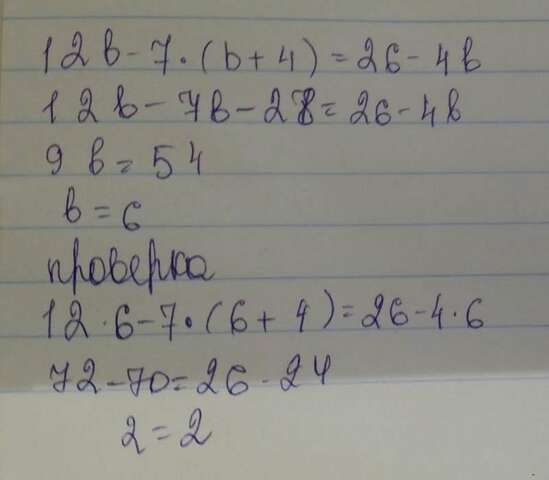 12b-7·(b+4)=26-4b
12b-7b-28=26-4b
9b=54
b=6
проверка
12·6-7·(6+4)=26-4·6
72-70=26-24
2=2